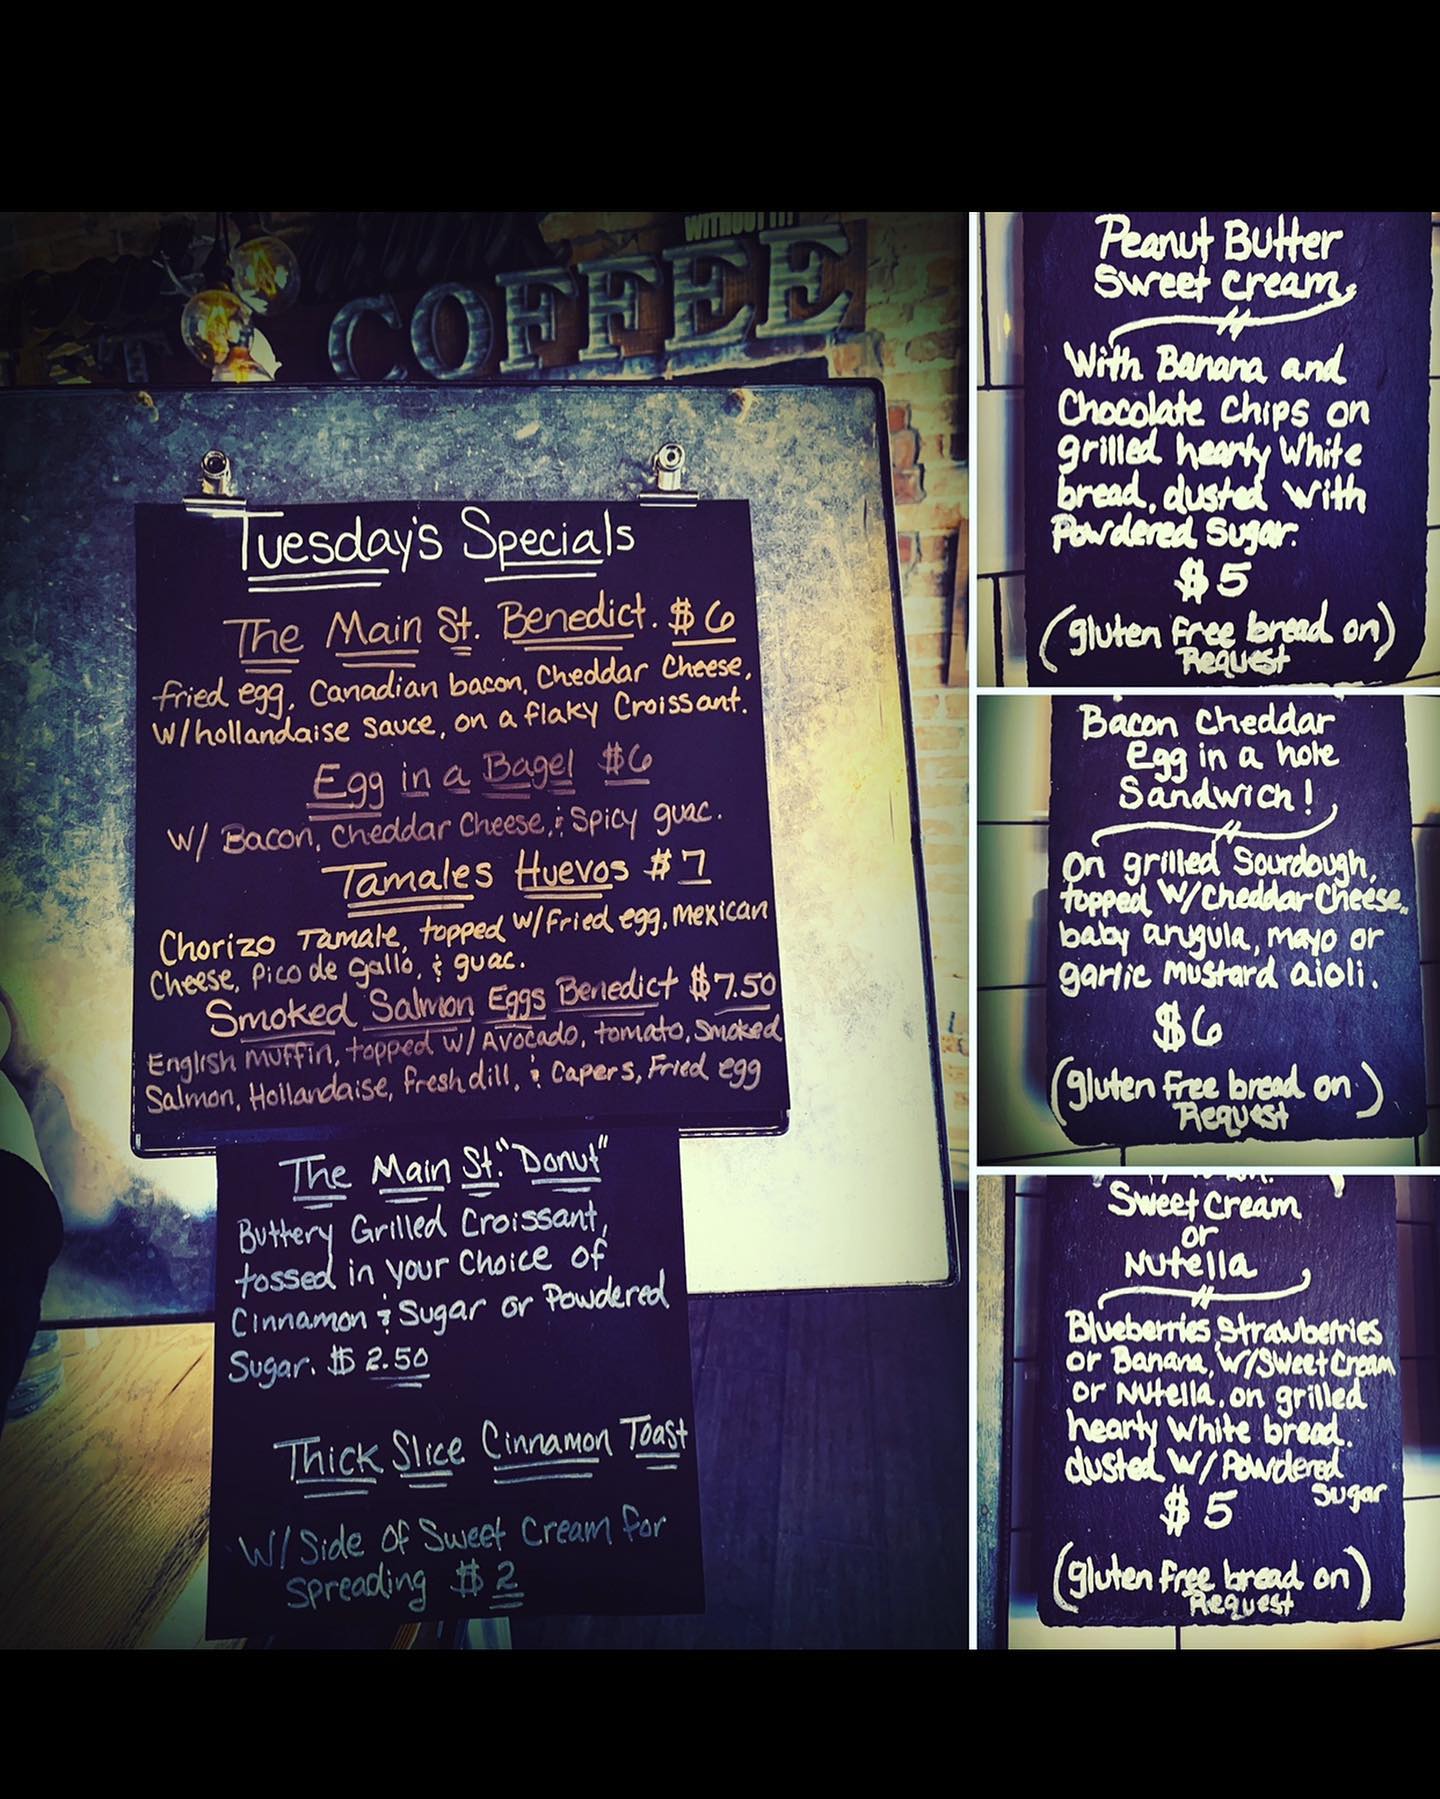 WITHOUT IT
COFFEE
Tuesday's Specials
The Main St. Benedict. $6
fried egg, Canadian bacon, Cheddar Cheese,
w/hollandaise sauce, on a flaky Croissant.
Egg in a Bagel $6
w/ Bacon, Cheddar Cheese, & Spicy guac.
Tamales Huevos $7
Chorizo Tamale, topped w/Fried egg, Mexican
Cheese, Pico de Gallo, & guac.
Smoked Salmon Eggs Benedict $7.50
English Muffin, topped w/ Avocado, tomato, Smoked
Salmon, Hollandaise, Fresh dill, & Capers, Fried egg
The Main St. "Donut"
Buttery Grilled Croissant,
tossed in your Choice of
Cinnamon & Sugar or Powdered
Sugar. $2.50
Thick Slice Cinnamon Toast
W/Side of Sweet Cream for
spreading $2
Peanut Butter
Sweet Cream
With Banana and
Chocolate Chips on
grilled hearty White
bread, dusted With
Powdered Sugar.
$5
(gluten free bread on)
Request
Bacon Cheddar
Egg in a hole
Sandwich!
On grilled Sourdough,
topped W/Cheddar Cheese,
baby arugula, mayo or
garlic mustard aioli.
$6
(gluten free bread on)
Request
Sweet Cream
or
Nutella
Blueberries, Strawberries
or Banana, W/Sweet Cream
or Nutella, on grilled
hearty White bread.
dusted W/ Powdered
Sugar
$5
(gluten free bread on)
Request